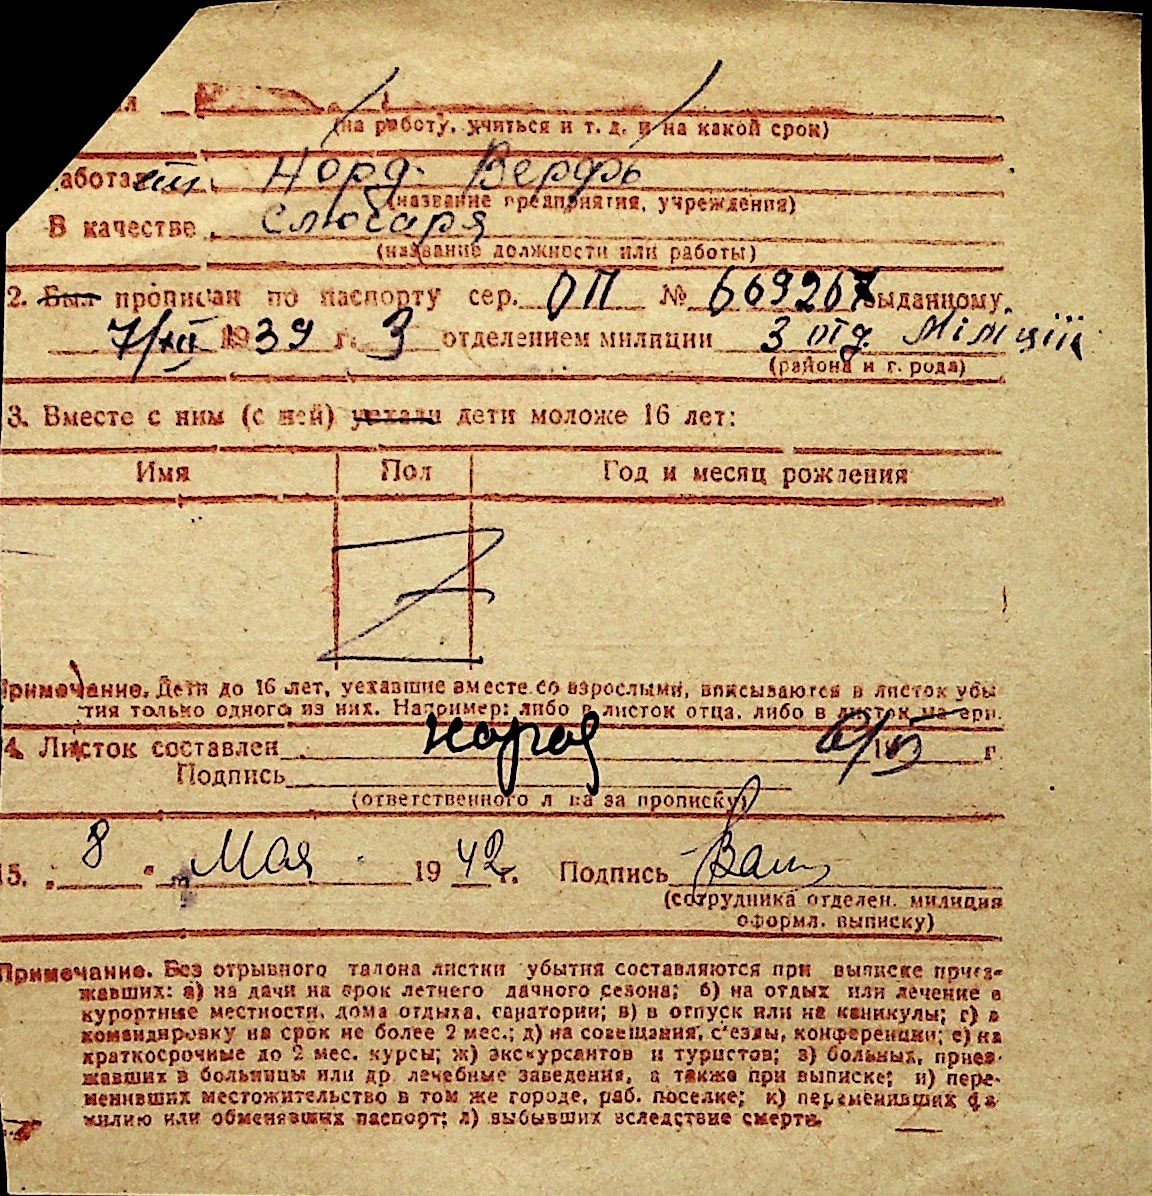 (на работу, учиться и т. д. и на какой срок)
Норд. Верфь
(название предприятия, учреждения)
В качестве слюсаря
(название должности или работы)
2. Был прописан по паспорту сер. ОП № 669267 выданному
7/XII 1939 г. 3 отделением милиции 3 отд. Міліції
(района и города)
3. Вместе с ним (с ней) уехали дети моложе 16 лет:
Имя Пол Год и месяц рождения
Примечание. Дети до 16 лет, уехавшие вместе со взрослыми, вписываются в листок убы
тия только одного из них. Например: либо в листок отца, либо в листок матери.
4. Листок составлен г
Подпись
(ответственного лица за прописку)
15. 8 " Мая 1942 г. Подпись
(сотрудника отделен. милиция
оформл. выписку)
Примечание. Без отрывного талона листки убытия составляются при выписке приез-
жавших: а) на дачи на срок летнего дачного сезона; б) на отдых или лечение в
курортные местности, дома отдыха, санатории; в) в отпуск или на каникулы; г) в
командировку на срок не более 2 мес.; д) на совещания, с'езды, конференции; е) на
краткосрочные до 2 мес. курсы; ж) экскурсантов и туристов; з) больных, приез-
жавших в больницы или др лечебные заведения, а также при выписке; и) пере-
менивших местожительство в том же городе, раб. поселке; к) переменивших фа
милию или обменявших паспорт; л) выбывших вследствие смерти.